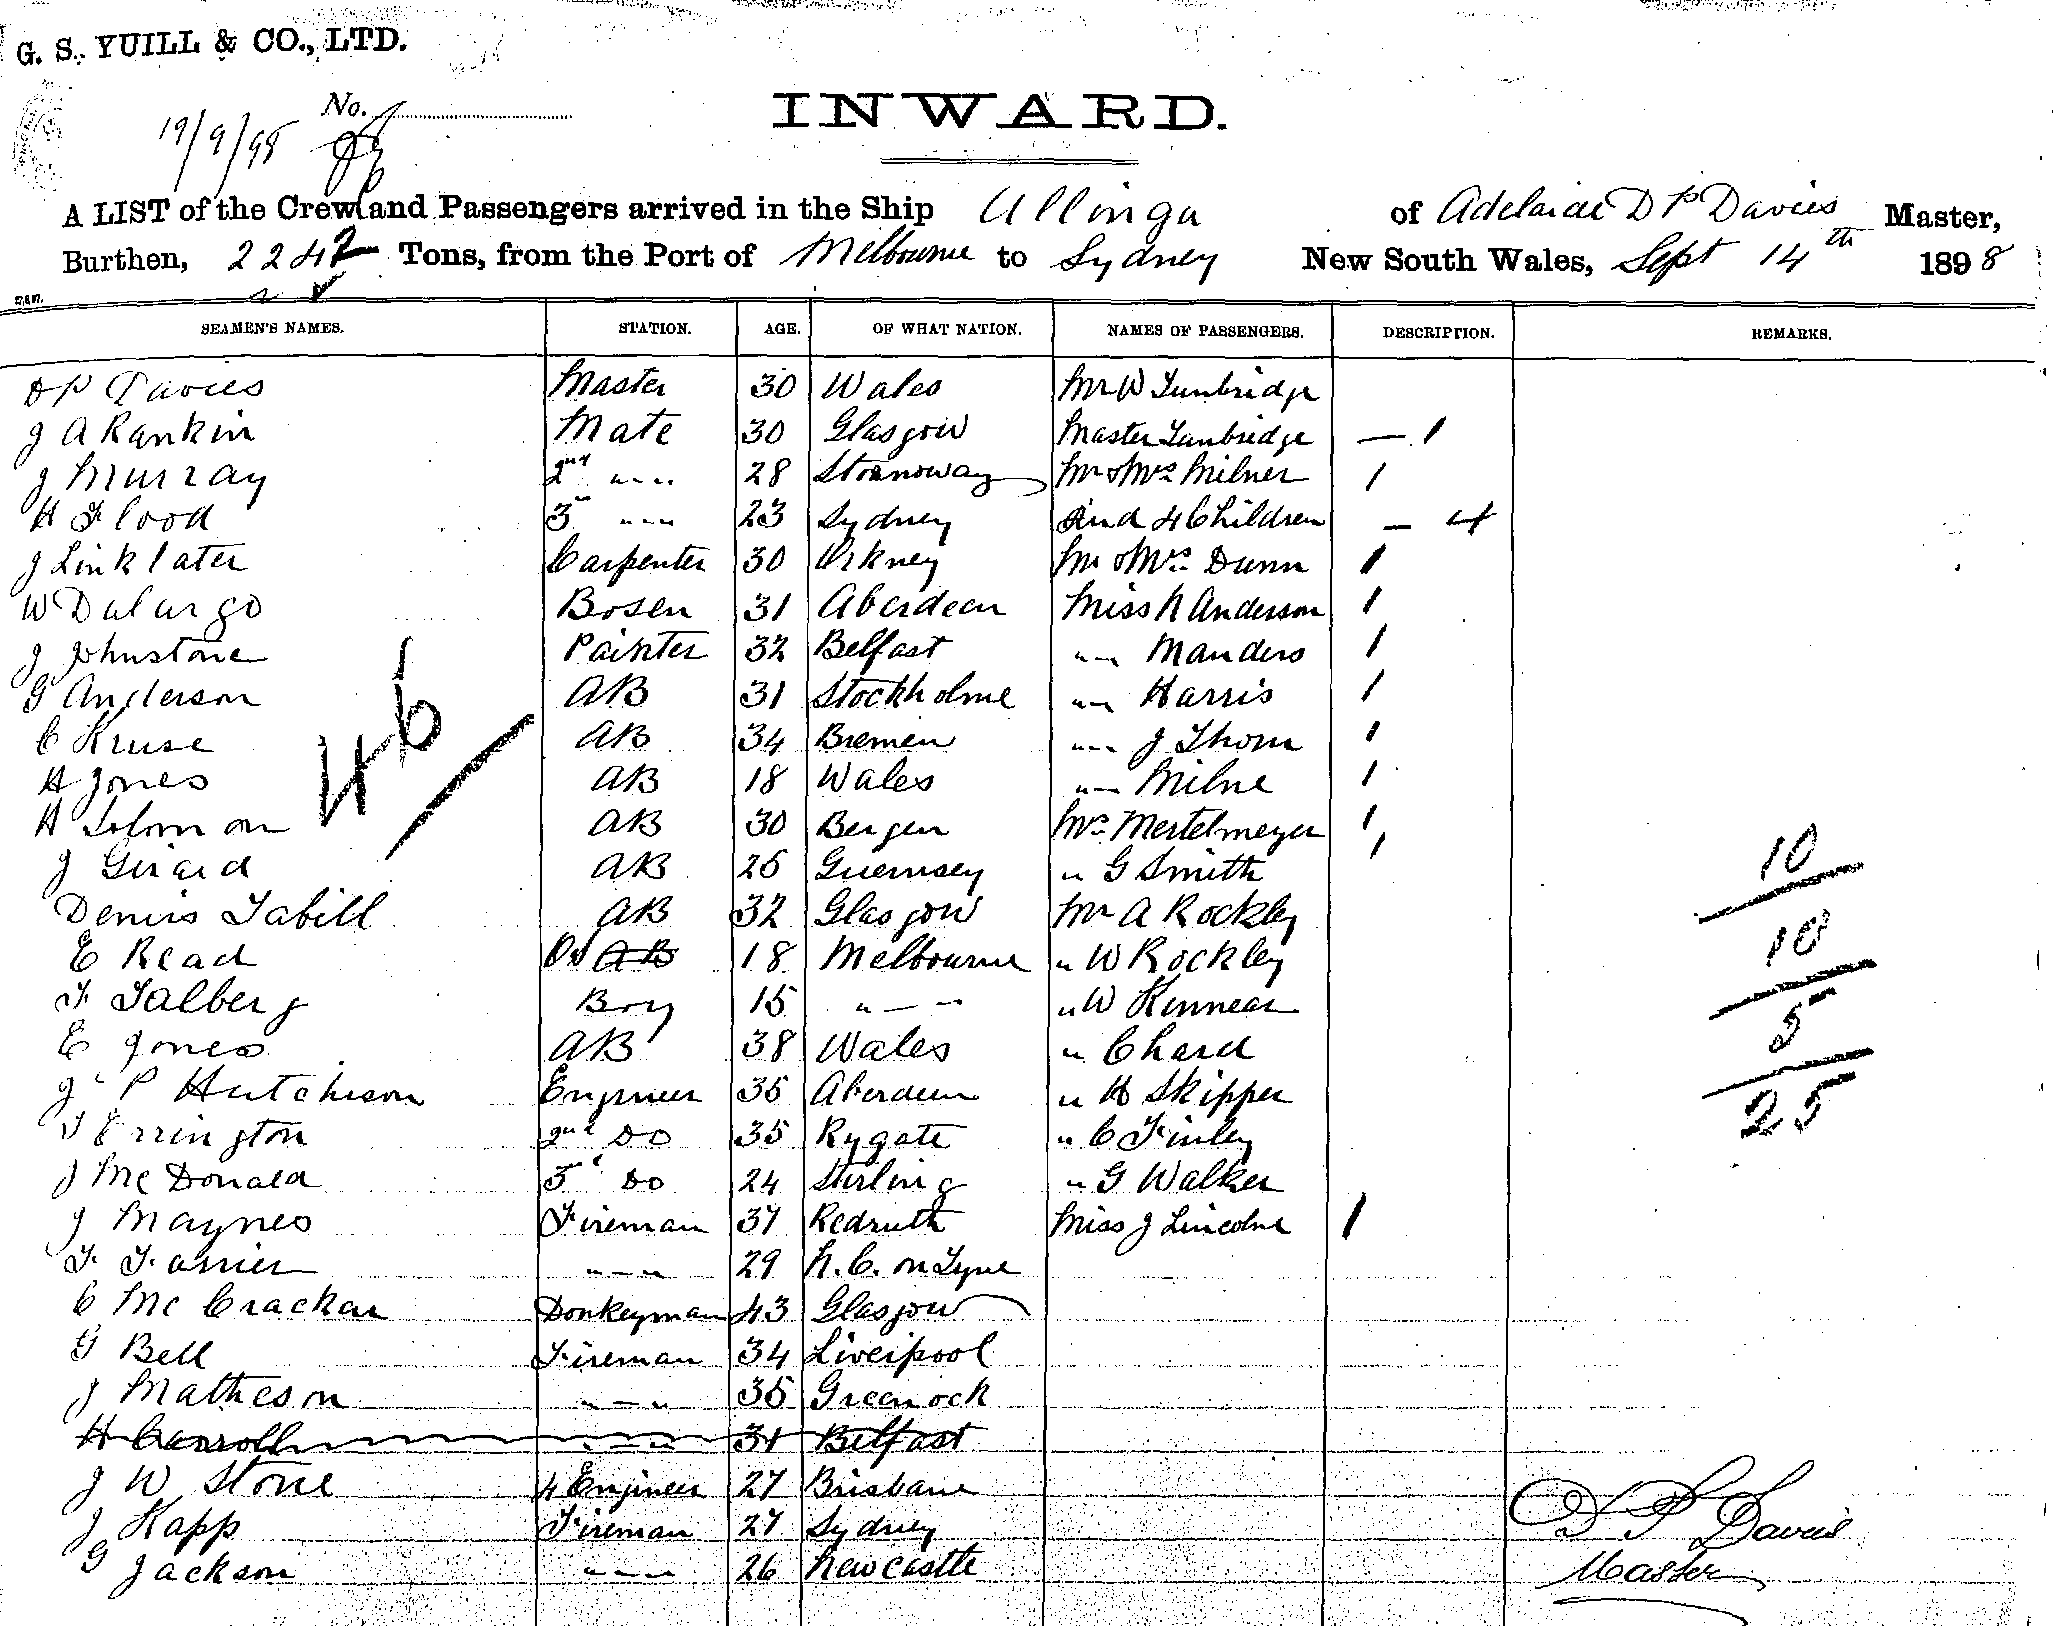 G. S. YUILL & CO., LTD.
No.
19/9/98
INWARD.
A LIST of the Crew and Passengers arrived in the Ship Ullinga of Adelaide D P Davies Master,
Burthen, 2242 Tons, from the Port of Melbourne to Sydney New South Wales, Sept 14th 1898
SEAMEN'S NAMES. STATION. AGE. OF WHAT NATION. NAMES OF PASSENGERS. DESCRIPTION. REMARKS.
D P Davies Master 30 Wales Mr W Tunbridge
J A Rankin Mate 30 Glasgow Master Tunbridge — 1
J Murray 2nd " — " 28 Stornoway Mr & Mrs Milner 1
H Flood 3 " — " 23 Sydney And 4 Children — 4
J Linklater Carpenter 30 Orkney Mr & Mrs Dunn 1
W Dalargo Bosen 31 Aberdeen Miss N Anderson 1
J Johnstone Painter 32 Belfast " — Manders 1
G Anderson AB 31 Stockholme " — Harris 1
C Kruse AB 34 Bremen " — J Thom 1
H Jones AB 18 Wales " — Milne 1
H Solomon AB 30 Bergen Mrs Mertelmeyer 1
J Girard AB 25 Guernsey " G Smith 1
Denis Tabill AB 32 Glasgow Mr A Rockley
E Read OS AB 18 Melbourne " W Rockley
F Talberg Boy 15 " — " " W Kinnear
E Jones AB 38 Wales " Chard
J P Hutchison Engineer 35 Aberdeen " H Skipper
T Errington 2nd Do 35 Rygate " C Finley
J McDonald 3 Do 24 Stirling " G Walker
J Maynes Fireman 37 Redruth Miss J Lincolne 1
F Farrier " — " 29 N. C. on Tyne
C McCrackan Donkeyman 43 Glasgow
G Bell Fireman 34 Liverpool
J Matheson " — " 35 Greenock
H Carroll " — " 31 Belfast
J W Stone 4 Engineer 27 Brisbane
J Kapp Fireman 27 Sydney
G Jackson " — " 26 Newcastle
46
10
10
5
25
D P Davies
Master